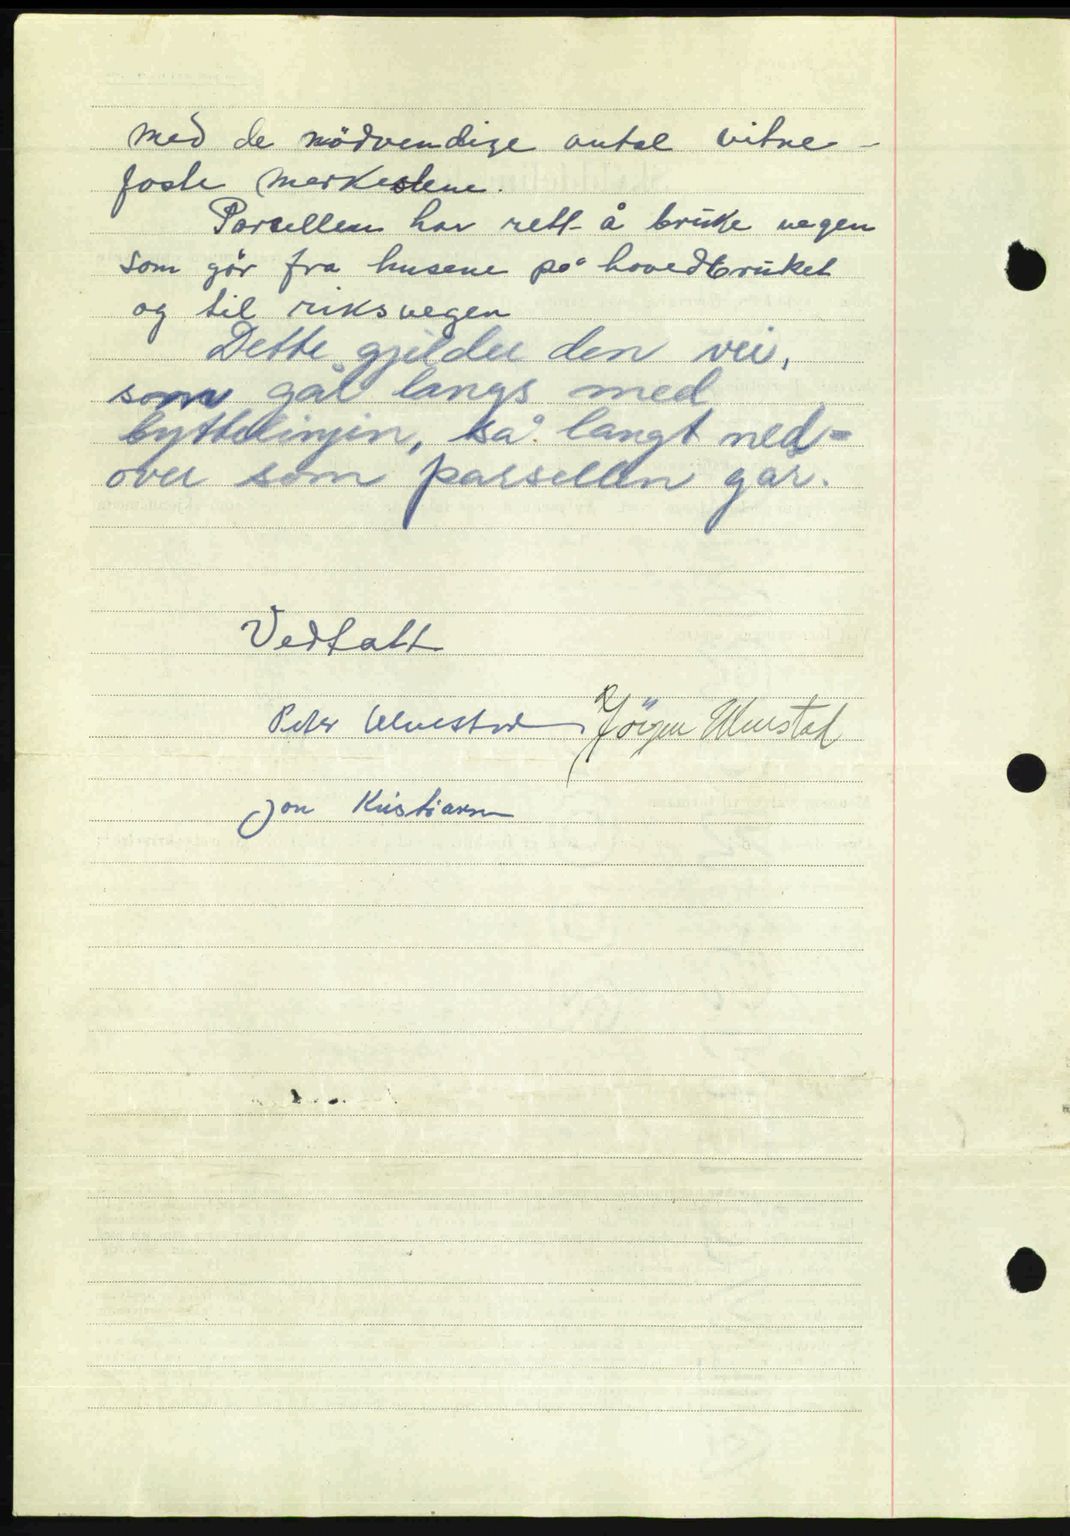 med de nödvendige antal vitne-
faste merkestene.
Parcellen har rett å bruke vegen
som går fra husene på hovedbruket
og til riksvegen
Dette gjelder den vei,
som går langs med
byttelinjen, så langt ned-
over som parsellen går.
Vedtatt
Peter Ulvestad Jörgen Ulvestad
Jon Kristiansen